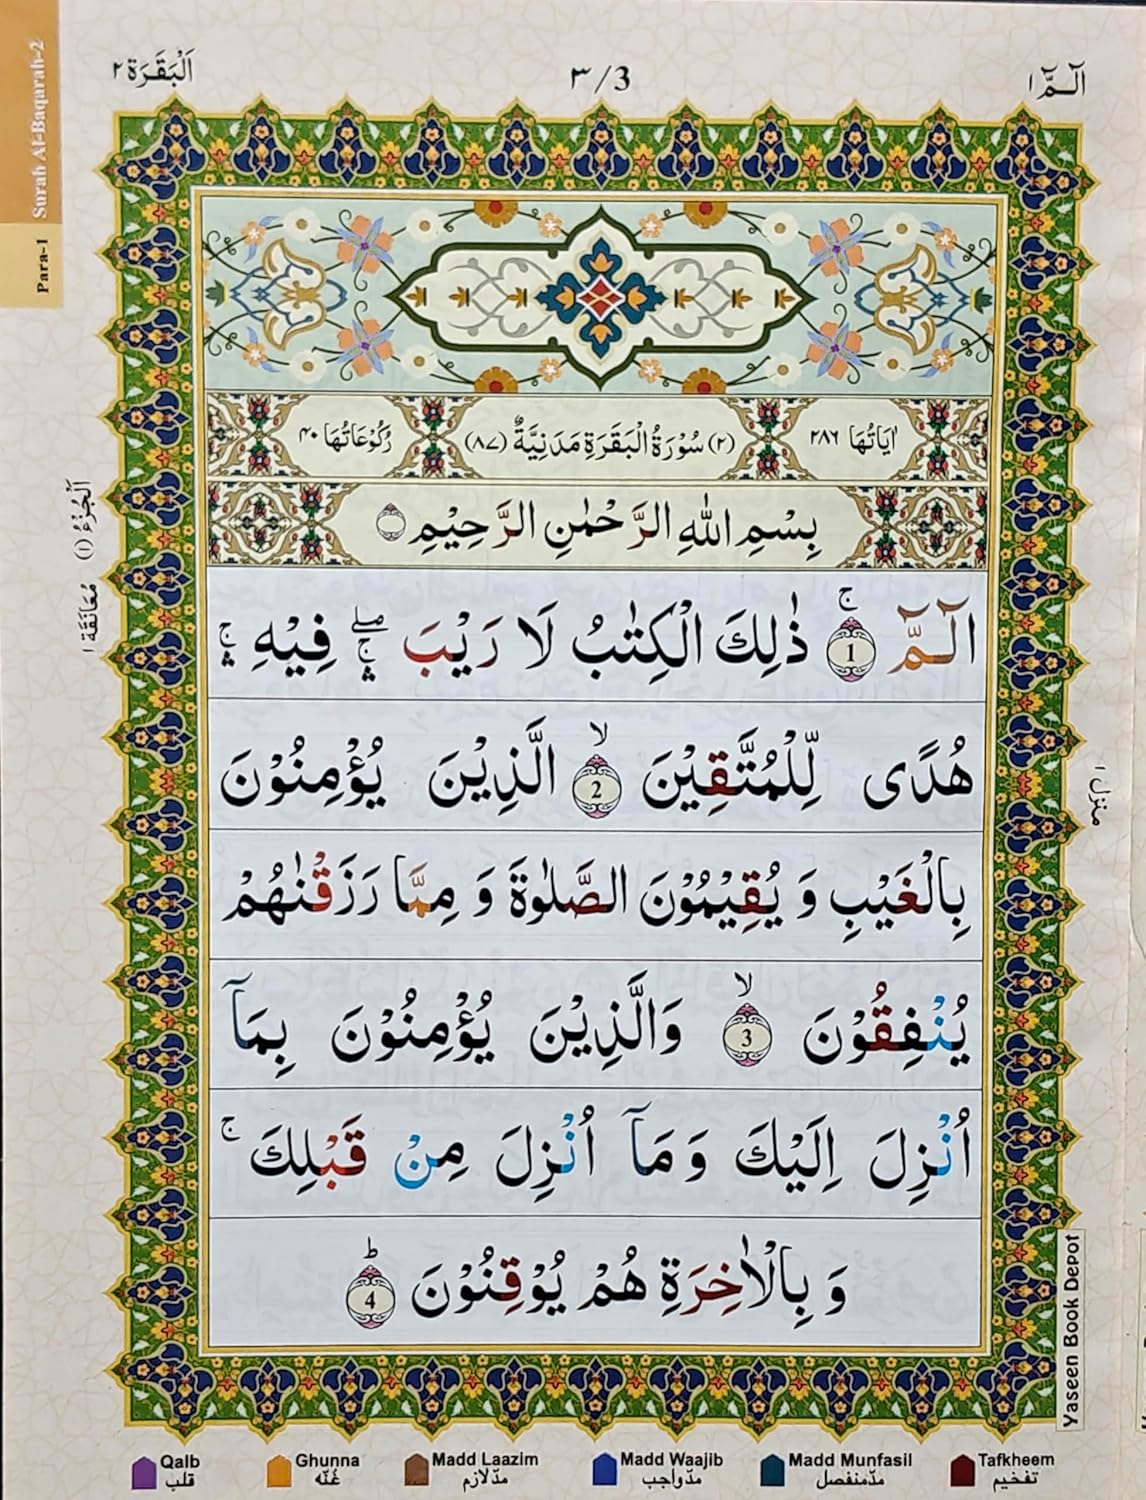 الٓمّٓ ۱
۳/3
اَلْبَقَرَة ۲
Surah Al-Baqarah-2
Para-1
اٰيَاتُهَا ۲۸۶
(۲) سُوْرَةُ الْبَقَرَةِ مَدَنِيَّةٌ (۸۷)
رُكُوْعَاتُهَا ۴۰
بِسْمِ اللّٰهِ الرَّحْمٰنِ الرَّحِيْمِ
الٓمّٓ ۚ 1 ذٰلِكَ الْكِتٰبُ لَا رَيْبَ ۛۖۚ فِيْهِ ۛۚ
هُدًى لِّلْمُتَّقِيْنَ ۙ 2 الَّذِيْنَ يُؤْمِنُوْنَ
بِالْغَيْبِ وَ يُقِيْمُوْنَ الصَّلٰوةَ وَ مِمَّا رَزَقْنٰهُمْ
يُنْفِقُوْنَ ۙ 3 وَالَّذِيْنَ يُؤْمِنُوْنَ بِمَآ
اُنْزِلَ اِلَيْكَ وَ مَآ اُنْزِلَ مِنْ قَبْلِكَ ۚ
وَ بِالْاٰخِرَةِ هُمْ يُوْقِنُوْنَ ؕ 4
اَلْجُزْءُ (۱)
مُعَانَقَة ۱
منزل ۱
Yaseen Book Depot
Qalb
قلب
Ghunna
غُنّه
Madd Laazim
مدّلازم
Madd Waajib
مدّواجب
Madd Munfasil
مدّمنفصل
Tafkheem
تفخيم